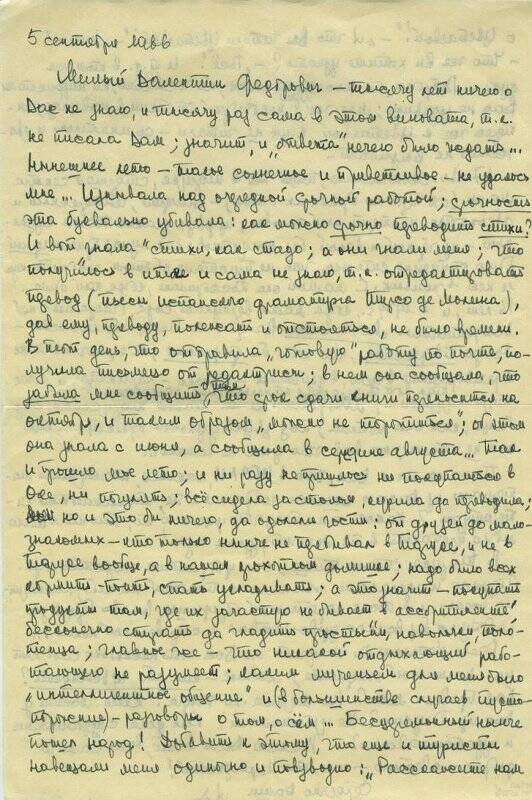 5 сентября 1966
Милый Валентин Федорович – тысячу лет ничего о
Вас не знаю, и тысячу раз сама в этом виновата, т. к.
не писала Вам; значит, и "ответа" нечего было ждать...
Нынешнее лето – такое солнечное и приветливое – не удалось
мне... Изнывала над очередной срочной работой; срочность
эта буквально убивала: как можно срочно переводить стихи?
И вот гнала "стихи, как стадо; а они гнали меня; что
получилось в итоге и сама не знаю, т. к. отредактировать
перевод (пьесы испанского драматурга Тирсо де Молина),
дав ему, переводу, полежать и отстояться, не было времени.
В тот день, что отправила "готовую" работу по почте, по-
лучила письмецо от редактрисы; в нем она сообщала, что
забыла мне сообщить о том, что срок сдачи книги переносится на
октябрь, и таким образом "можно не торопиться"; об этом
она узнала с июня, а сообщила в середине августа... Так
и прошло мое лето; и ни разу не пришлось ни покупаться в
Оке, ни погулять; всё сидела за столом, курила да переводила;
но и это бы ничего, да одолели гости; от друзей до мало-
знакомых – кто только нынче не перебывал в Тарусе, и не в
Тарусе вообще, а в нашем крохотном домишке; надо было всех
кормить-поить, спать укладывать; а это значит – покупать
продукты там, где их зачастую не бывает в ассортименте!
бесконечно стирать да гладить простыни, наволоки, поло-
тенца; главное же – что никакой отдыхающий рабо-
тающего не разумеет; каким мученьем для меня было
"интеллигентное общение" и (в большинстве случаев пусто-
порожние) – разговоры о том, о сём... Бесцеремонный нынче
пошел народ! Добавить к этому, что еще и туристы
навещали меня одиночно и повзводно: "Расскажите нам